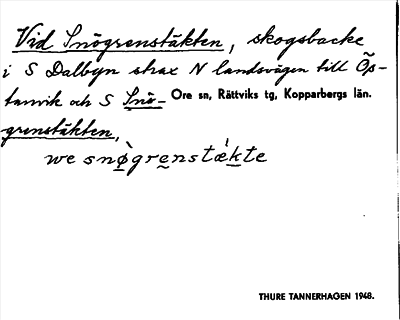 Vid Snögrenstäkten, skogsbacke
i S Dalbyn strax N landsvägen till Öp-
tanvik och S Snö- Ore sn, Rättviks tg, Kopparbergs län.
grenstäkten,
we snø̀grenstæ̀kte
THURE TANNERHAGEN 1948.